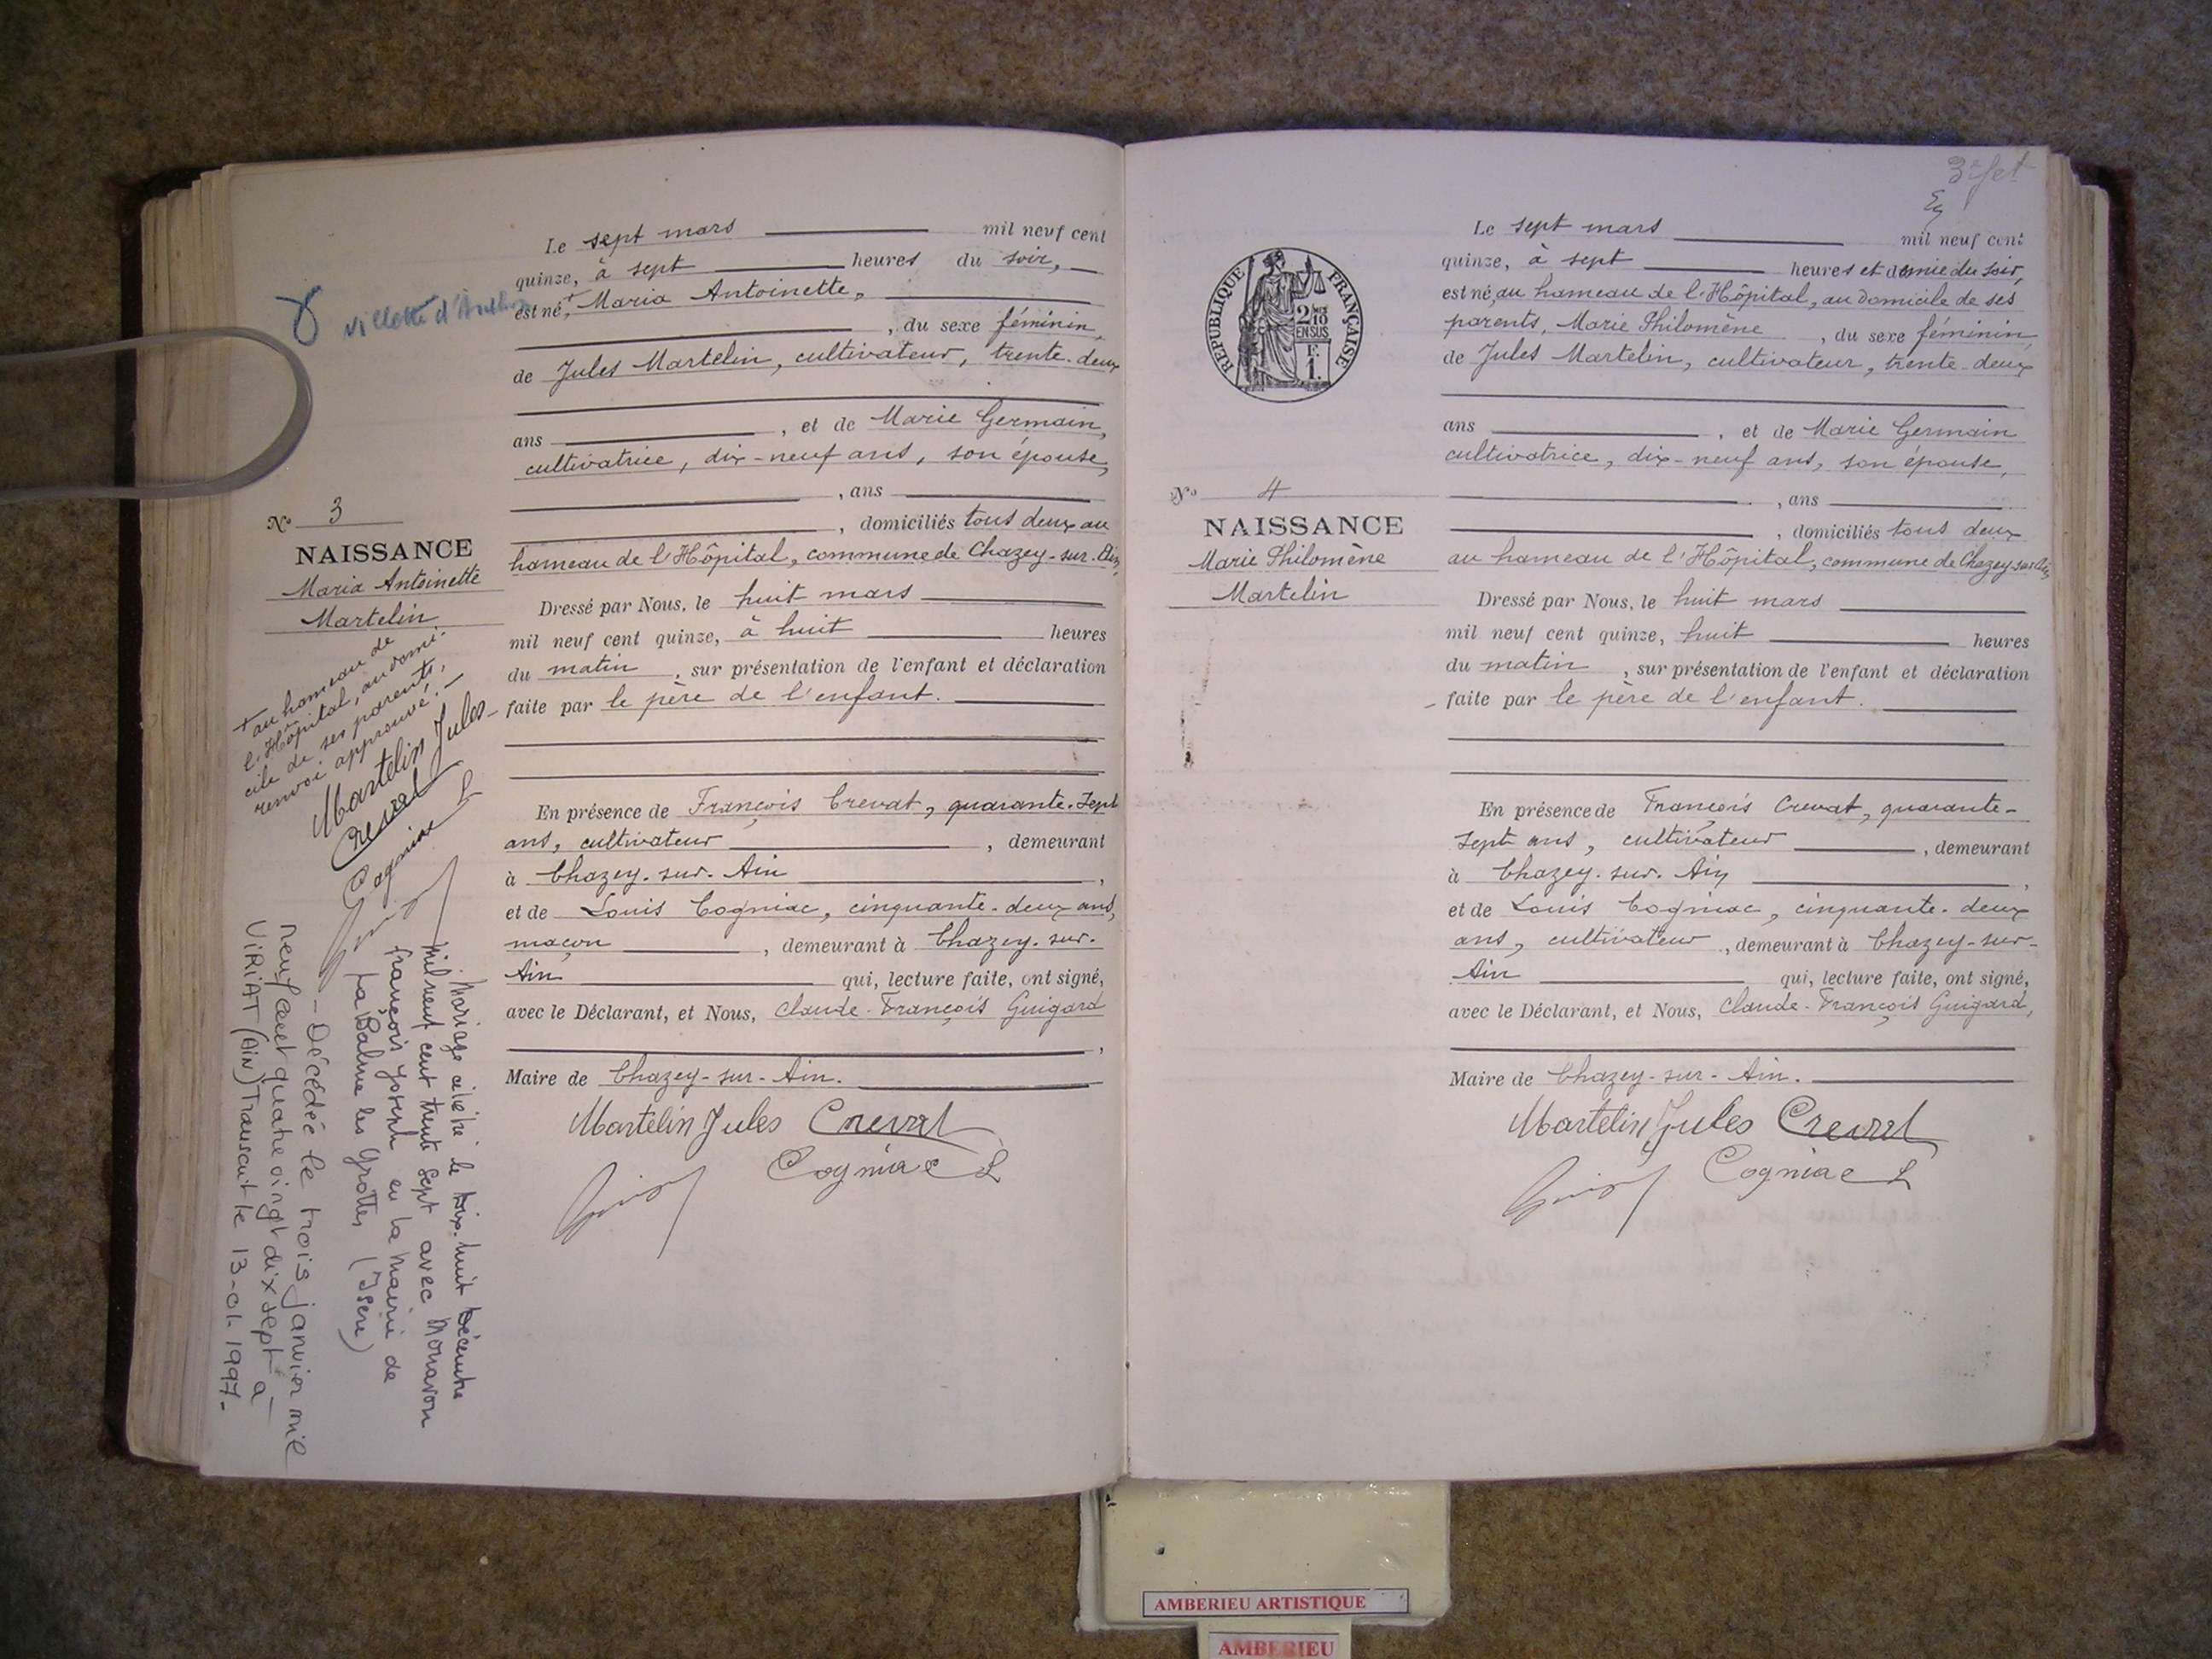 Le sept mars mil neuf cent
quinze, à sept heures du soir,
est né,+ Maria Antoinette,
, du sexe féminin,
de Jules Martelin, cultivateur, trente-deux
ans , et de Marie Germain,
cultivatrice, dix-neuf ans, son épouse,
, ans
, domiciliés tous deux au
hameau de l'Hôpital, commune de Chazey-sur-Ain,
Dressé par Nous, le huit mars
mil neuf cent quinze, à huit heures
du matin , sur présentation de l'enfant et déclaration
faite par le père de l'enfant.
En présence de François Crevat, quarante-sept
ans, cultivateur , demeurant
à Chazey-sur-Ain ,
et de Louis Cogniac, cinquante-deux ans,
maçon , demeurant à Chazey-sur-
Ain qui, lecture faite, ont signé,
avec le Déclarant, et Nous, Claude-François Guigard
,
Maire de Chazey-sur-Ain.
Martelin Jules Crevat
Cogniac L
Villette d'Anthon
No 3
NAISSANCE
Maria Antoinette
Martelin
+ au hameau de
l'Hôpital, au domi-
cile de ses parents,
renvoi approuvé.-
Martelin Jules
Crevat
Cogniac L
Mariage célébré le dix-huit décembre
mil neuf cent trente sept avec Monavon
François Joseph en la Mairie de
La Balme les Grottes (Isère)
- Décédée le trois janvier mil
neuf cent quatre vingt dix sept à
VIRIAT (Ain) Transcrit le 13-01-1997-
Le sept mars mil neuf cent
quinze, à sept heures et demie du soir,
est né, au hameau de l'Hôpital, au domicile de ses
parents, Marie Philomène , du sexe féminin,
de Jules Martelin, cultivateur, trente-deux
ans , et de Marie Germain
cultivatrice, dix-neuf ans, son épouse,
, ans
, domiciliés tous deux
au hameau de l'Hôpital, commune de Chazey-sur-Ain,
Dressé par Nous, le huit mars
mil neuf cent quinze, huit heures
du matin , sur présentation de l'enfant et déclaration
faite par le père de l'enfant.
En présence de François Crevat, quarante-
sept ans, cultivateur , demeurant
à Chazey-sur-Ain ,
et de Louis Cogniac, cinquante-deux
ans, cultivateur , demeurant à Chazey-sur-
Ain qui, lecture faite, ont signé,
avec le Déclarant, et Nous, Claude-François Guigard,
Maire de Chazey-sur-Ain.
Martelin Jules Crevat
Cogniac L
REPUBLIQUE FRANÇAISE
2/10 EN SUS
F. 1.
No 4
NAISSANCE
Marie Philomène
Martelin
AMBERIEU ARTISTIQUE
AMBERIEU